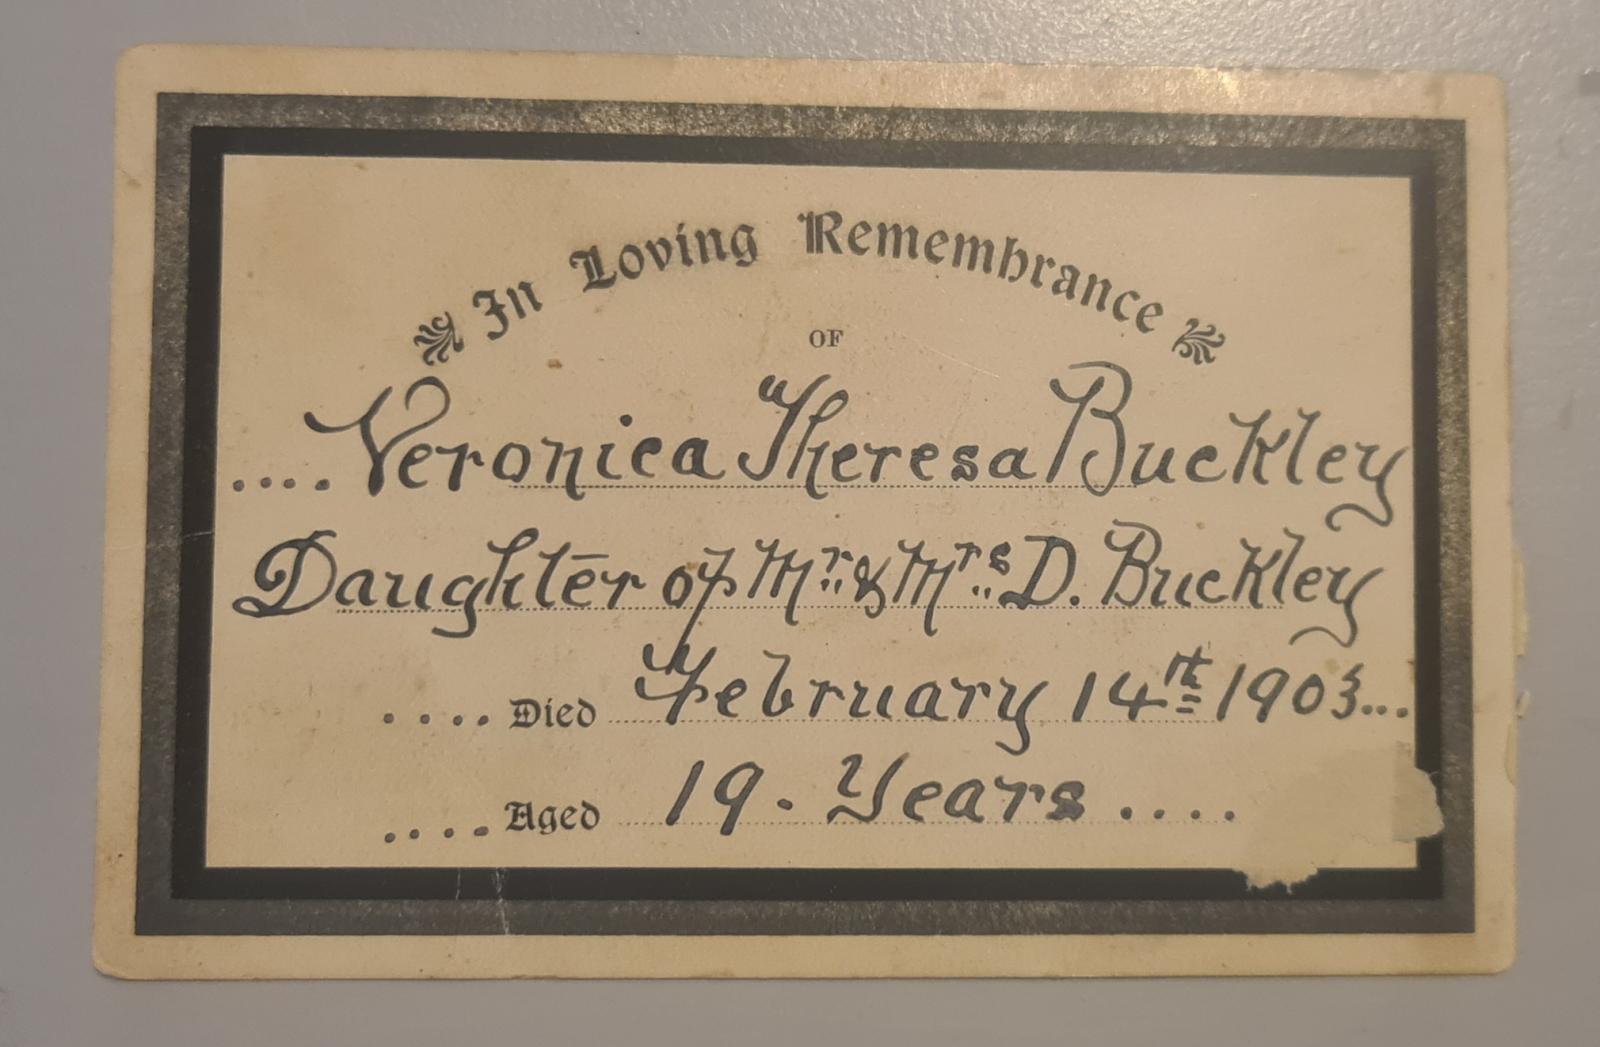 In Loving Remembrance
OF
.... Veronica Theresa Buckley
Daughter of Mr. & Mrs. D. Buckley
.... Died February 14th 1903...
.... Aged 19. Years ....